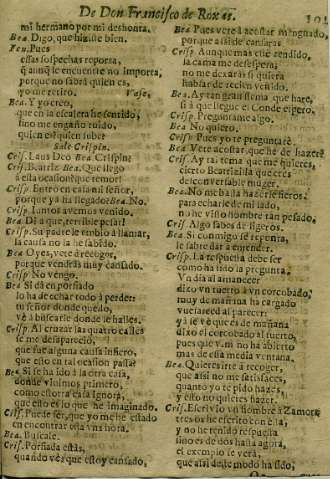 De Don Francisco de Roxas.
mi hermano por mi deshonra.
Bea. Digo, que hiziste bien.
Pues
essas sospechas reporta,
q̃ aunq̃ le encuentre no importa,
porque no sabrà quien es,
yo me retiro. Vase.
Bea. Y yo creo,
que en la escalera he sentido,
sino me engaño ruido,
quien es? quien sube?
Sale Crispin.
Cris. Laus Deo. Bea. Crispin?
Cris. Beatriz. Bea. Que llegò
a essa ocasion! que temor!
Crisp. Entrò en casa mi señor,
porque ya ha llegado? Bea. No.
Cris. Juntos avemos venido.
Bea. Di a que, terrible pesar!
Crisp. Su padre le embiò a llamar,
la causa no la he sabido.
Bea. Oyes, vete a recoger,
porque vendràs muy cansado.
Crisp. No vengo.
Bea. Si dà en porfiado
lo ha de echar todo à perder:
tu señor donde quedo,
vè à buscarle donde le halles.
Crisp. Al cruzar las quatro calles
se me desapareciò,
que fue alguna causa infiero,
que esto en tal ocasion passa:
Bea. Si se ha ido à la otra casa,
donde vivimos primero,
como estotra casa ignora,
que esto es lo que he imaginado.
Cris. Puede ser, que yo me he estado
en encontrar esta vna hora.
Bea. Buscale.
Crisp. Porfiada estàs,
quando vès que estoy cansado,
Bea. Pues vete a acostar menguado,
por que assi de cansaràs.
Crisp. Aunque mas esté rendido,
la cama me desespera;
no me dexaràs si quiera
hablar de recien venido.
Bea. Ay tan gran que hare,
si à que llegue el Conde espero.
Crisp. Preguntame algo.
Bea. No quiero.
Crisp. Pues yo te preguntarè.
Bea. Vete a acostar, que he de hazer?
Crisp. Ay tal tema que me quieres,
cierto Beatrizilla que eres
desconversable muger.
Bea. No me basta hazerle fieros?
para echarle de mi lado,
no he visto hombre tan pesado,
Cris. Algo sabes de figeros.
Bea. Si conmigo se repunta,
le sabrè dar à entender.
Crisp. La respuesta debe ser
como ha sido la pregunta.
Vn dia al amanecer
dixo vn tuerto à vn corcobado,
muy de mañana ha cargado
vuesarced al parecer:
yà se vè que es de mañana
dixo el corcobado al tuerto,
pues que v.m. no ha abierto
mas de essa media ventana.
Bea. Quieres irte à recoger,
que assi no me satisfaces,
quanto yo te pido hazes,
y esto no quieres hazer.
Cris. Escriviò vn hombre à Zamora,
tres ò he escrito con esta,
y no he tenido respuesta
sino es de dos hasta agora,
el exemplo se verà,
que assi deste modo ha sido,